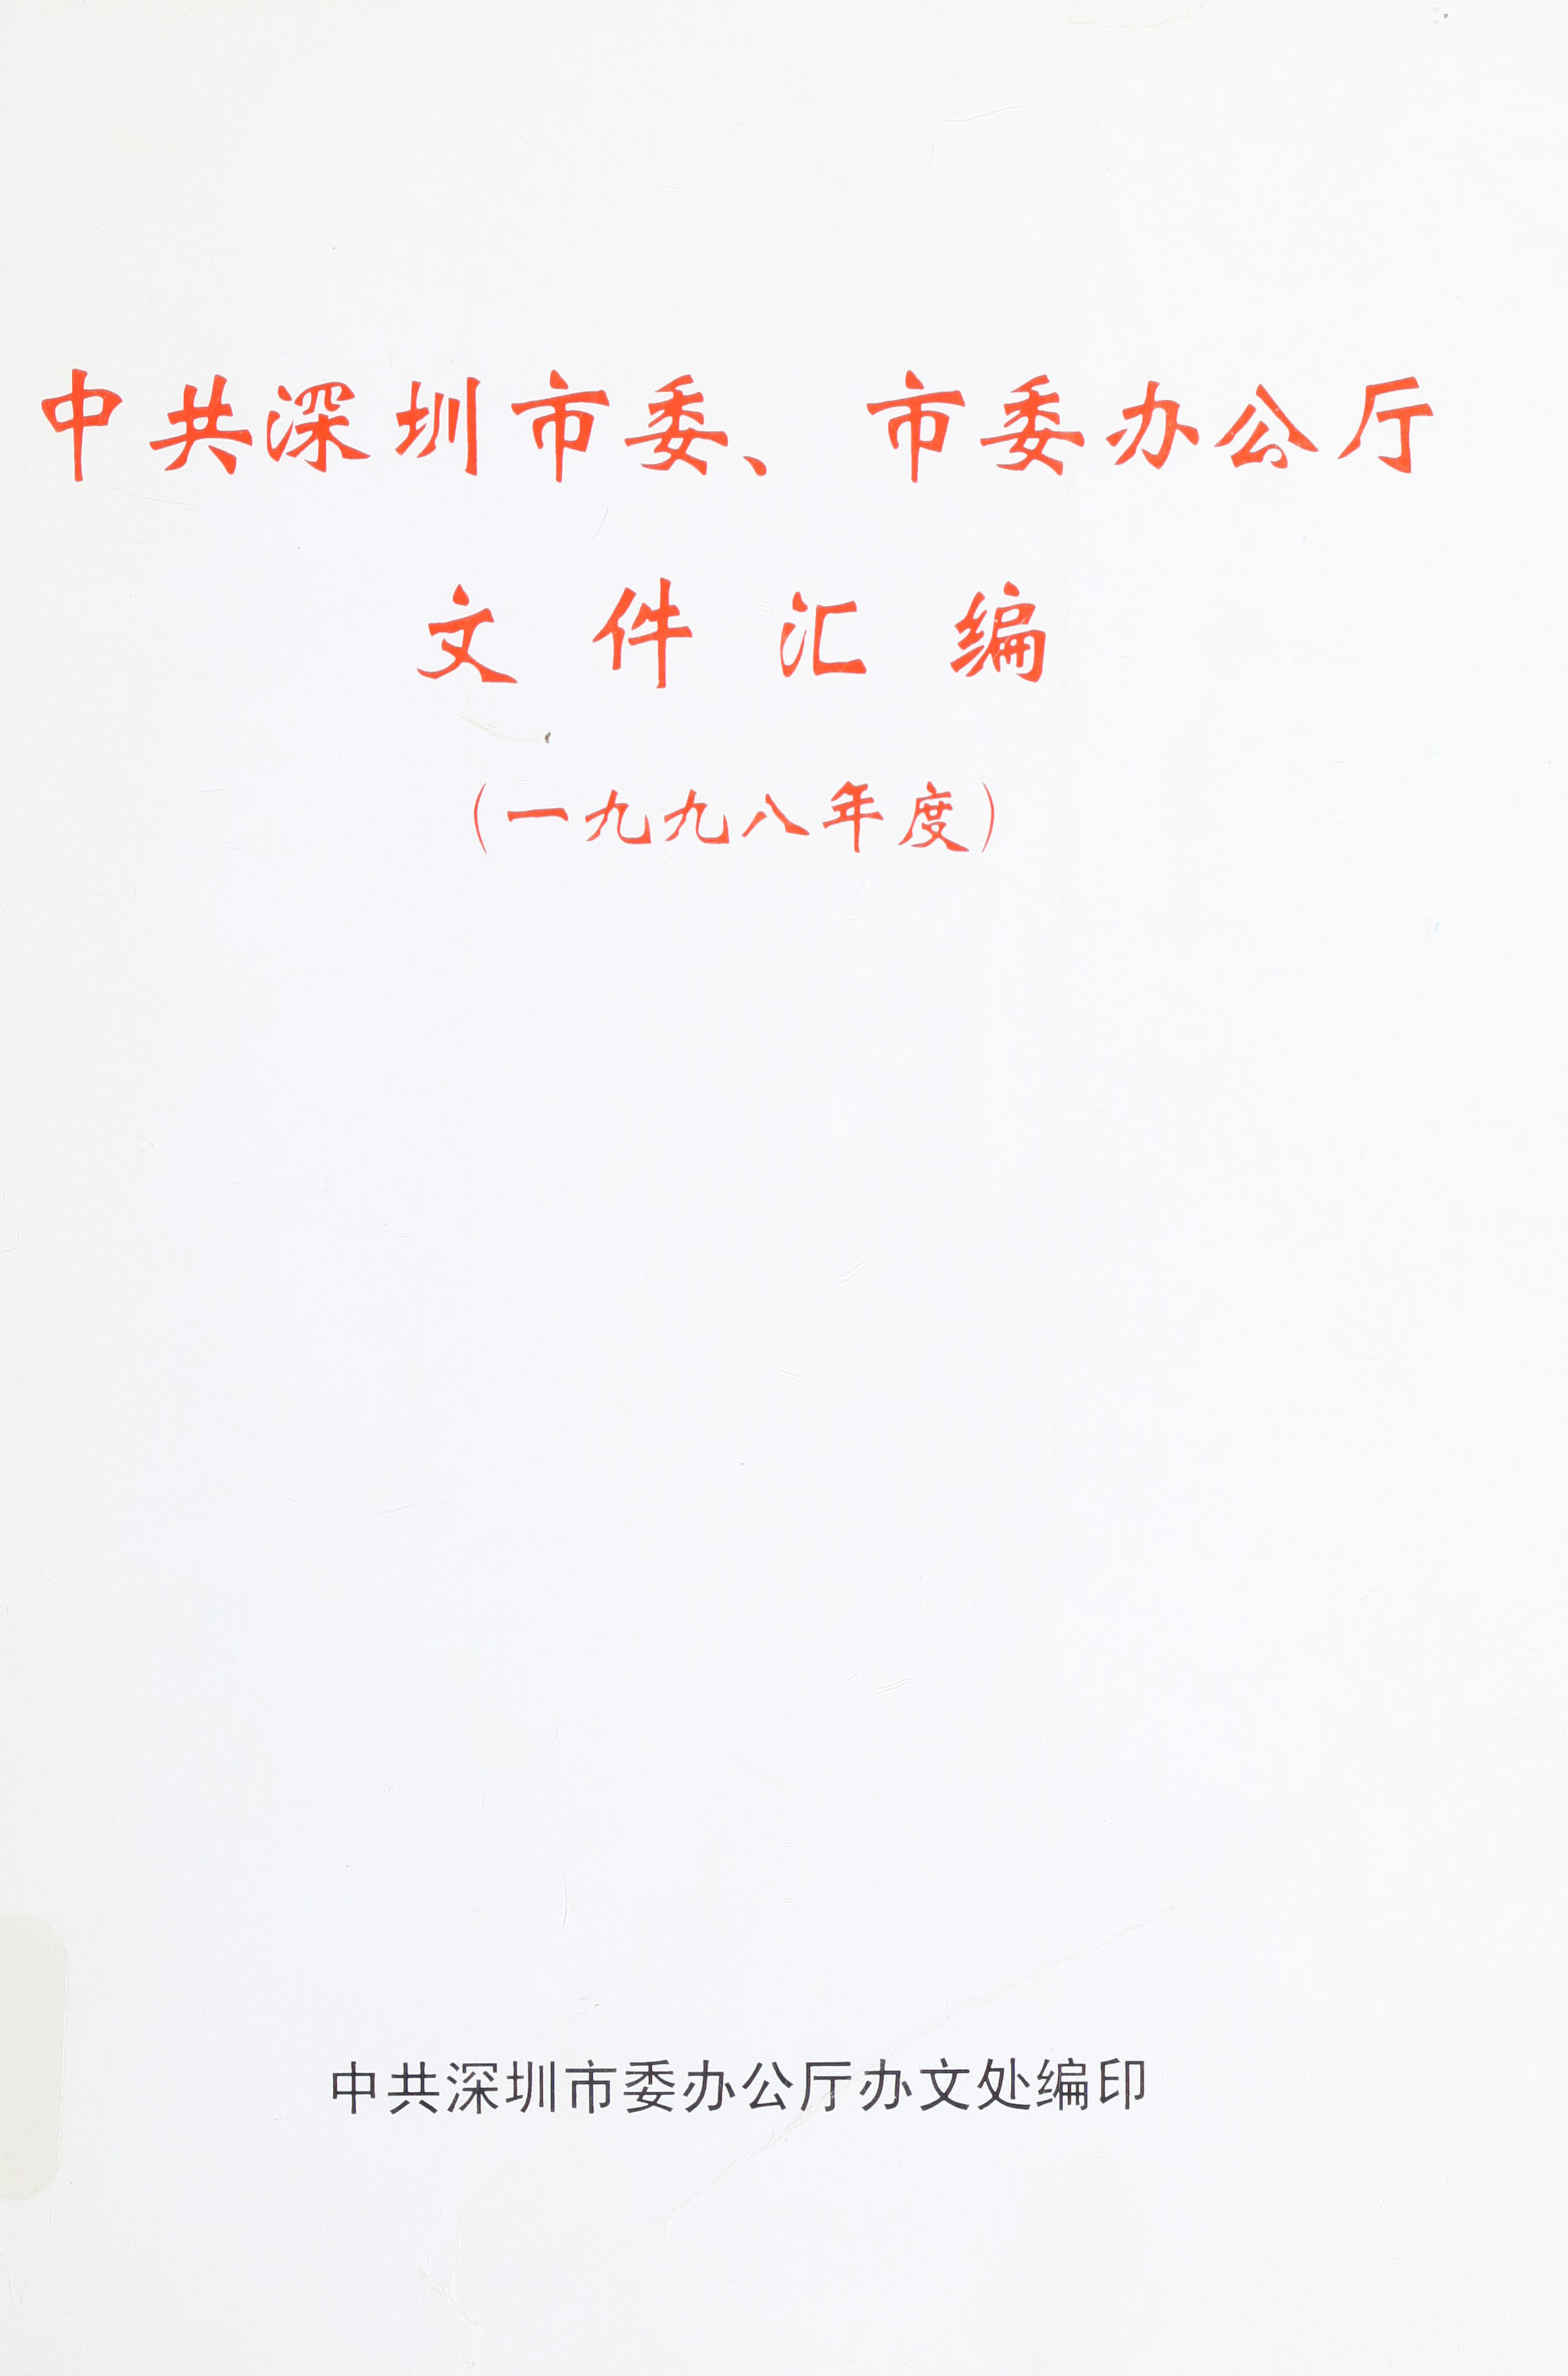 中共深圳市委、市委办公厅
文件汇编
（一九九八年度）
中共深圳市委办公厅办文处编印